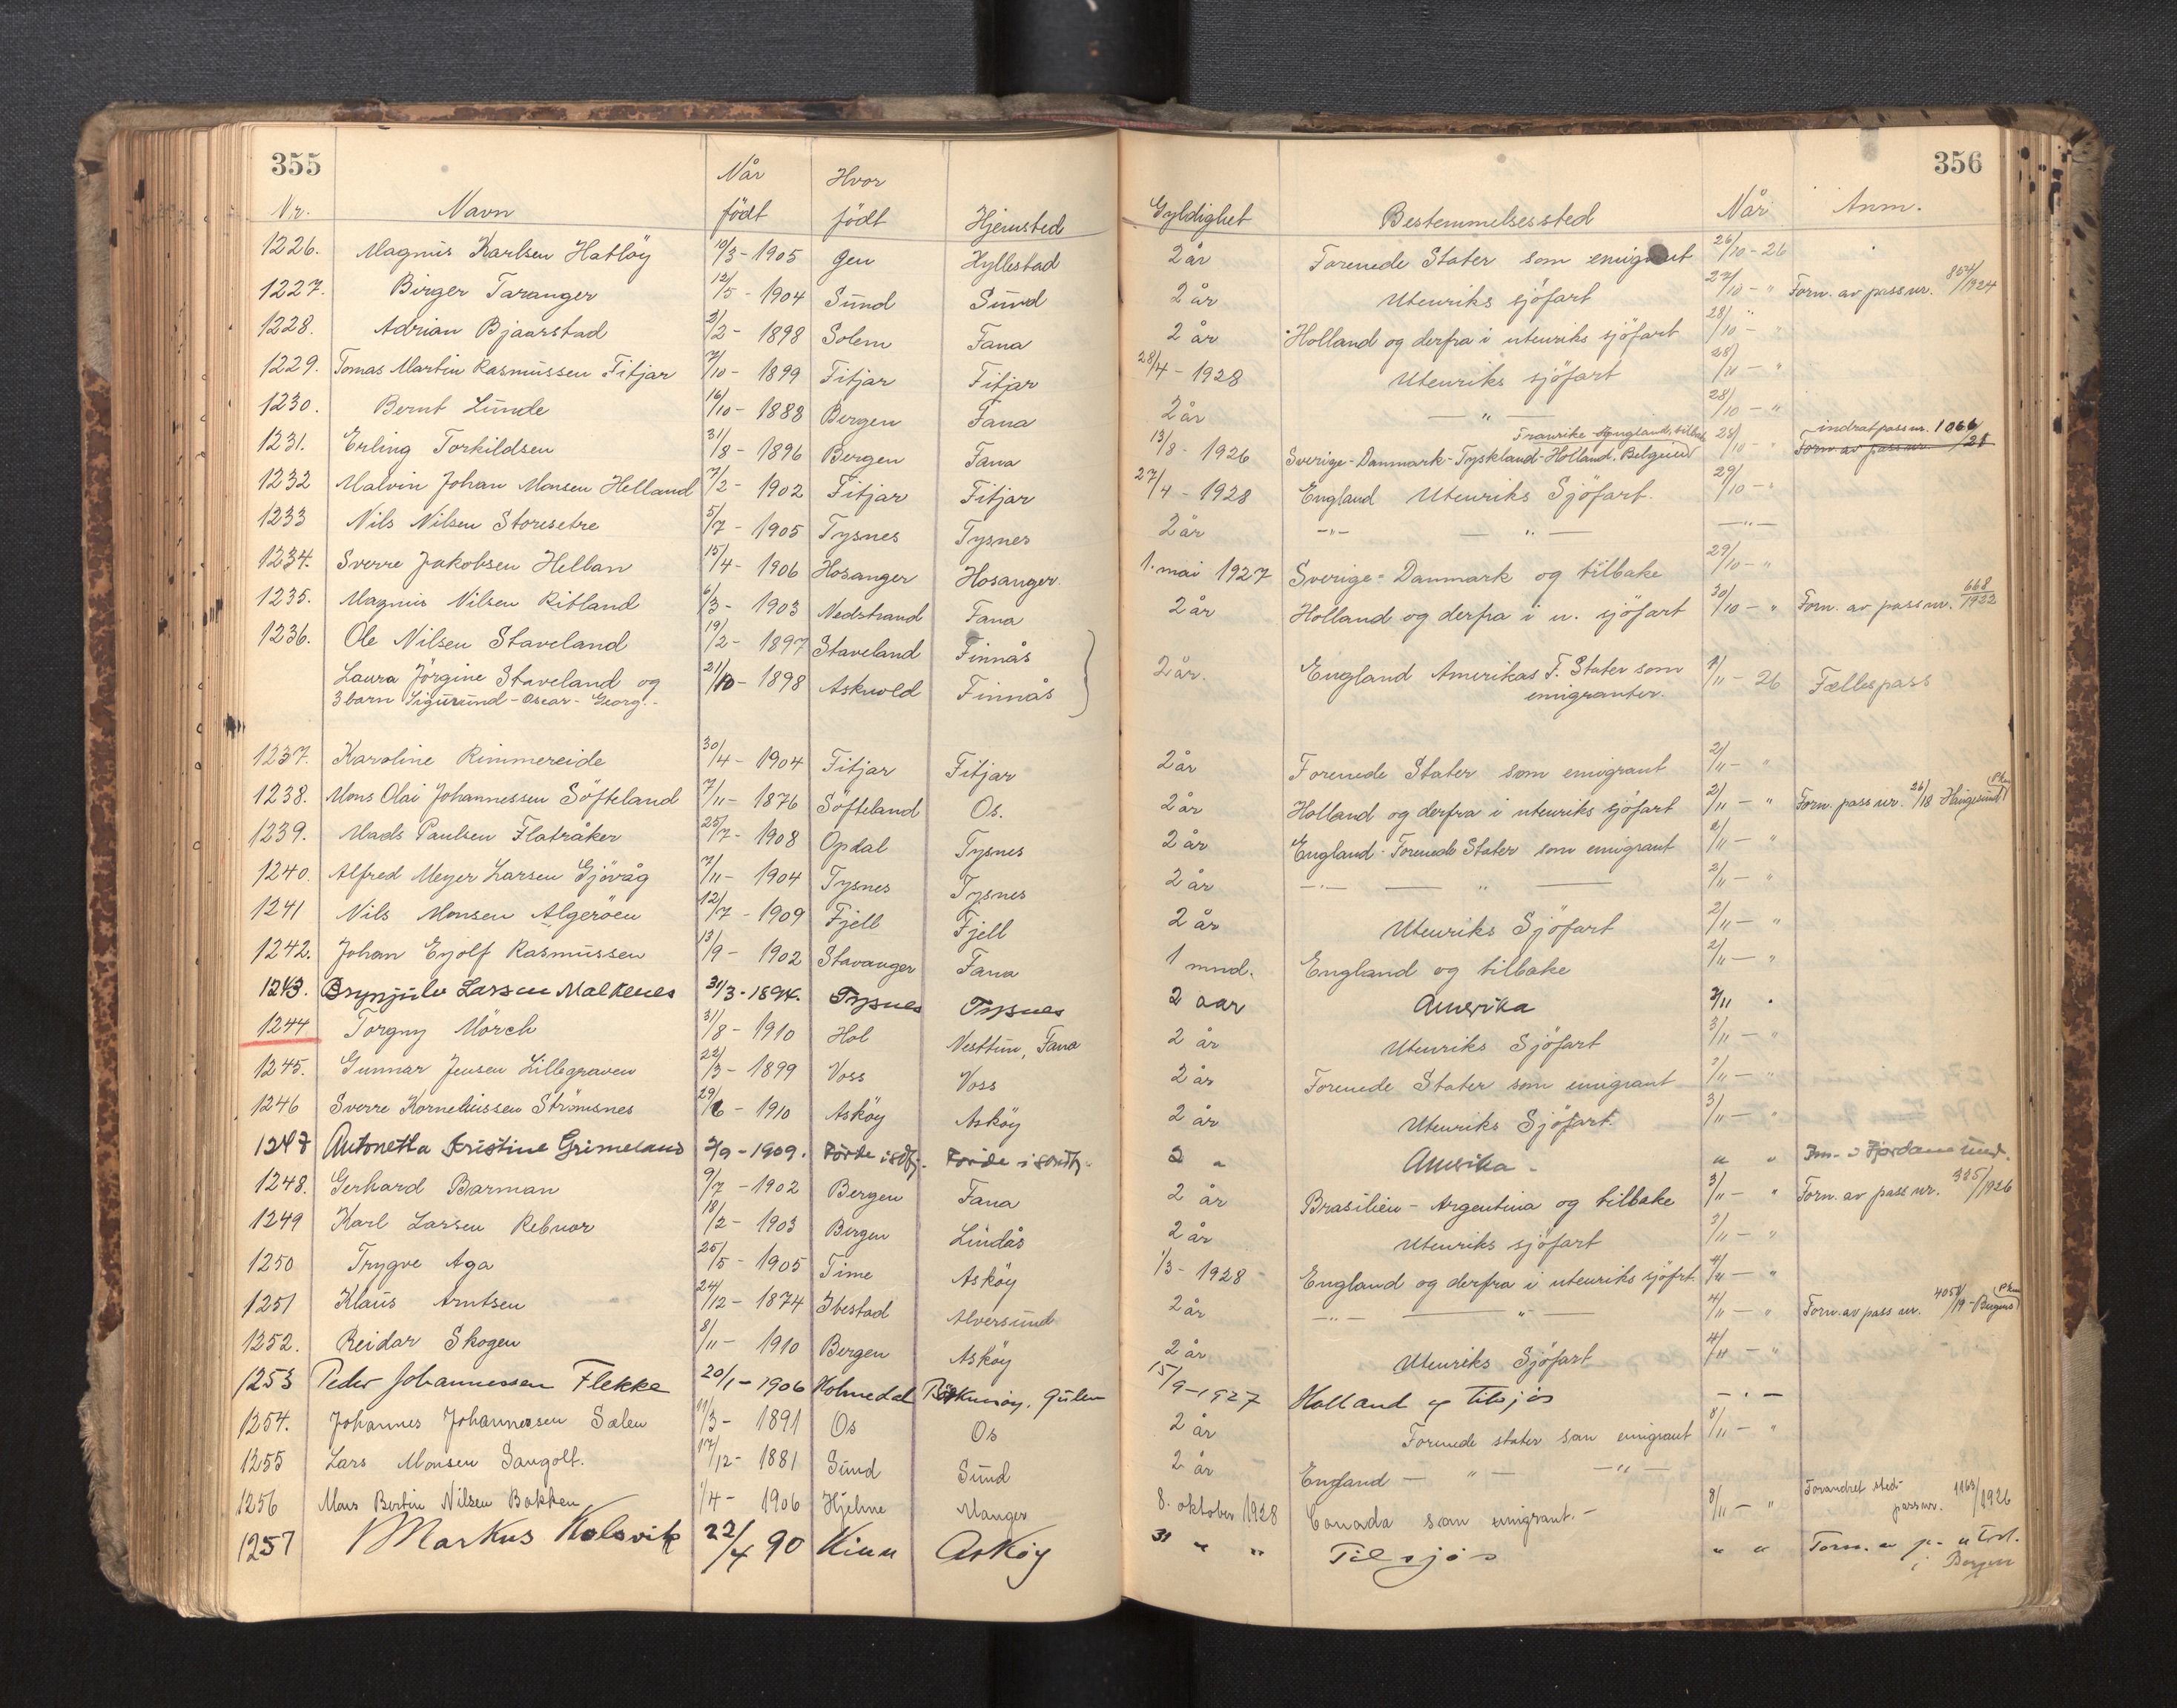 355 356
Når Hvor
Nr. Navn født født Hjemsted Gyldighet Bestemmelsessted Når Anm.
1226. Magnus Karlsen Hatløy 10/3 - 1905 Gen Hyllestad 2 år Forenede Stater som emigrant 26/10 - 26
1227. Birger Taranger 12/5 - 1904 Sund Sund 2 år Utenriks sjöfart 27/10 - " Forn. av pass nr. 854/1924
1228. Adrian Bjaarstad 3/2 - 1898 Solem Fana 2 år Holland og derfra i utenriks sjöfart 28/10 - "
1229. Tomas Martin Rasmussen Fitjar 7/10 - 1899 Fitjar Fitjar 28/4 - 1928 Utenriks sjöfart 28/10 - "
1230. Bernt Lunde 16/10 - 1888 Bergen Fana 2 år — " — 28/10 - "
Frankrike England tilbake indratpass nr. 1066
1231. Erling Torkildsen 31/8 - 1896 Bergen Fana 13/8 - 1926 Sverige - Danmark - Tyskland - Holland, Belgien 28/10 - " Forn av pass nr. /21
1232 Malvin Johan Monsen Helland 7/2 - 1902 Fitjar Fitjar 27/4 - 1928 England Utenriks Sjöfart. 29/10 - "
1233 Nils Nilsen Storesetre 5/7 - 1905 Tysnes Tysnes 2 år — " — — " — — " —
1234. Sverre Jakobsen Hellan 15/4 - 1906 Hosanger Hosanger 1. mai 1927 Sverige - Danmark og tilbake 29/10 - "
1235. Magnus Nilsen Ritland 6/3 - 1903 Nedstrand Fana 2 år Holland og derfra i u. sjöfart 30/10 - " Forn. av pass nr. 668/1922
1236. Ole Nilsen Staveland 19/2 - 1897 Staveland Finnås
Laura Jörgine Staveland og 21/10 - 1898 Askvold Finnås 2 år. England Amerikas F. Stater som 1/11 - 26 Fællespass
3 barn Sigurund - Oscar - Georg. - emigranter.
1237. Karoline Rimmereide 30/4 - 1904 Fitjar Fitjar 2 år Forenede Stater som emigrant 2/11 - "
1238. Mons Olai Johannessen Söfteland 7/11 - 1876 Söfteland Os. 2 år Holland og derfra i utenriks sjöfart 2/11 - " Forn. pass nr. 26/18 Haugesund
1239. Mads Paulsen Flatråker 25/7 - 1908 Opdal Tysnes 2 år England - Forenede Stater som emigrant 2/11 - "
1240. Alfred Meyer Larsen Gjövåg 7/11 - 1904 Tysnes Tysnes 2 år — " — — " — 2/11 - "
1241 Nils Monsen Algeröen 12/7 - 1909 Fjell Fjell 2 år Utenriks Sjöfart 2/11 - "
1242. Johan Eyolf Rasmussen 13/9 - 1902 Stavanger Fana 1 mnd. England og tilbake 2/11 - "
1243. Brynjulv Larsen Malkenes 31/3 - 1894. Tysnes Tysnes 2 aar Amerika 2/11 "
1244 Torgny Mörch 31/8 - 1910 Hol Nesttun, Fana 2 år Utenriks Sjöfart 3/11 - "
1245. Gunnar Jensen Lillegraven 22/3 - 1899 Voss Voss 2 år Forenede Stater som emigrant 3/11 - "
1246 Sverre Korneliussen Strömsnes 29/6 - 1910 Asköy Asköy 2 år Utenriks Sjöfart. 3/11 - "
1247 Antonetta Kristine Grimeland 2/9 - 1909. Förde i sdfj. Förde i Söndfj. 2 " Amerika - " "
1248. Gerhard Barman 9/7 - 1902 Bergen Fana 2 år Brasilien - Argentina og tilbake 3/11 - " Forn. av pass nr. 385/1926
1249 Karl Larsen Rebnor 18/2 - 1903 Bergen Lindås 2 år Utenriks sjöfart 3/11 - "
1250 Trygve Aga 25/5 - 1905 Time Asköy 1/3 - 1928 England og derfra i utenriks sjöfrt. 4/11 - "
1251 Klaus Arntsen 24/12 - 1874 Ibestad Alversund 2 år — " — — " — 4/11 - " Forn. av pass nr. 4058/19 - Bergens
1252. Reidar Skogen 8/11 - 1910 Bergen Asköy 2 år Utenriks Sjöfart 4/11 - "
1253 Peder Johannessen Flekke 20/1 - 1906 Holmedal Gulen 15/9 - 1927 Holland og tilsjös — " —
1254. Johannes Johannessen Salen 11/3 - 1891 Os Os 2 år Forenede stater som emigrant 8/11 - "
1255 Lars Monsen Sangolt. 17/12 - 1881 Sund Sund 2 år England — " — — " —
1256 Mons Bertin Nilsen Bakken 1/4 - 1906 Hjelme Manger 8. oktober 1928 Canada som emigrant. - 8/11 - " Forandret sted - pass nr. 1163/1926
1257 Markus Kolsvik 22/4 90 Kinn Asköy 31 " " Til sjös " " Forn. i Bergen